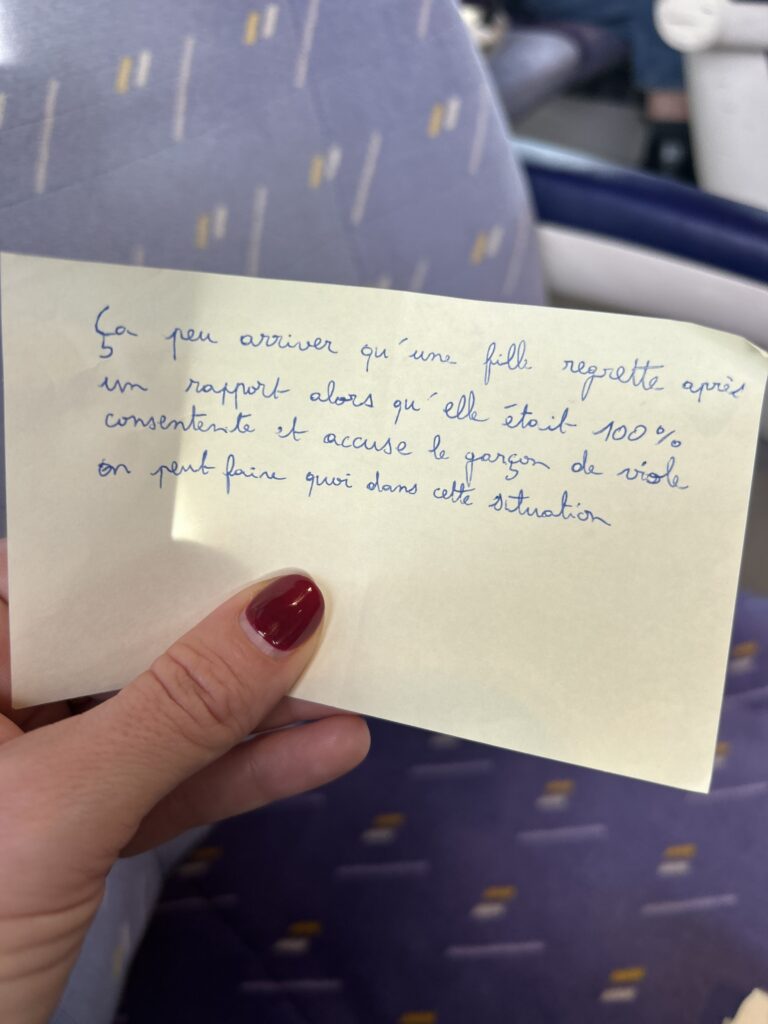 Ça peu arriver qu'une fille regrette après
un rapport alors qu'elle était 100%
consentente et accuse le garçon de viole
on peut faire quoi dans cette situation